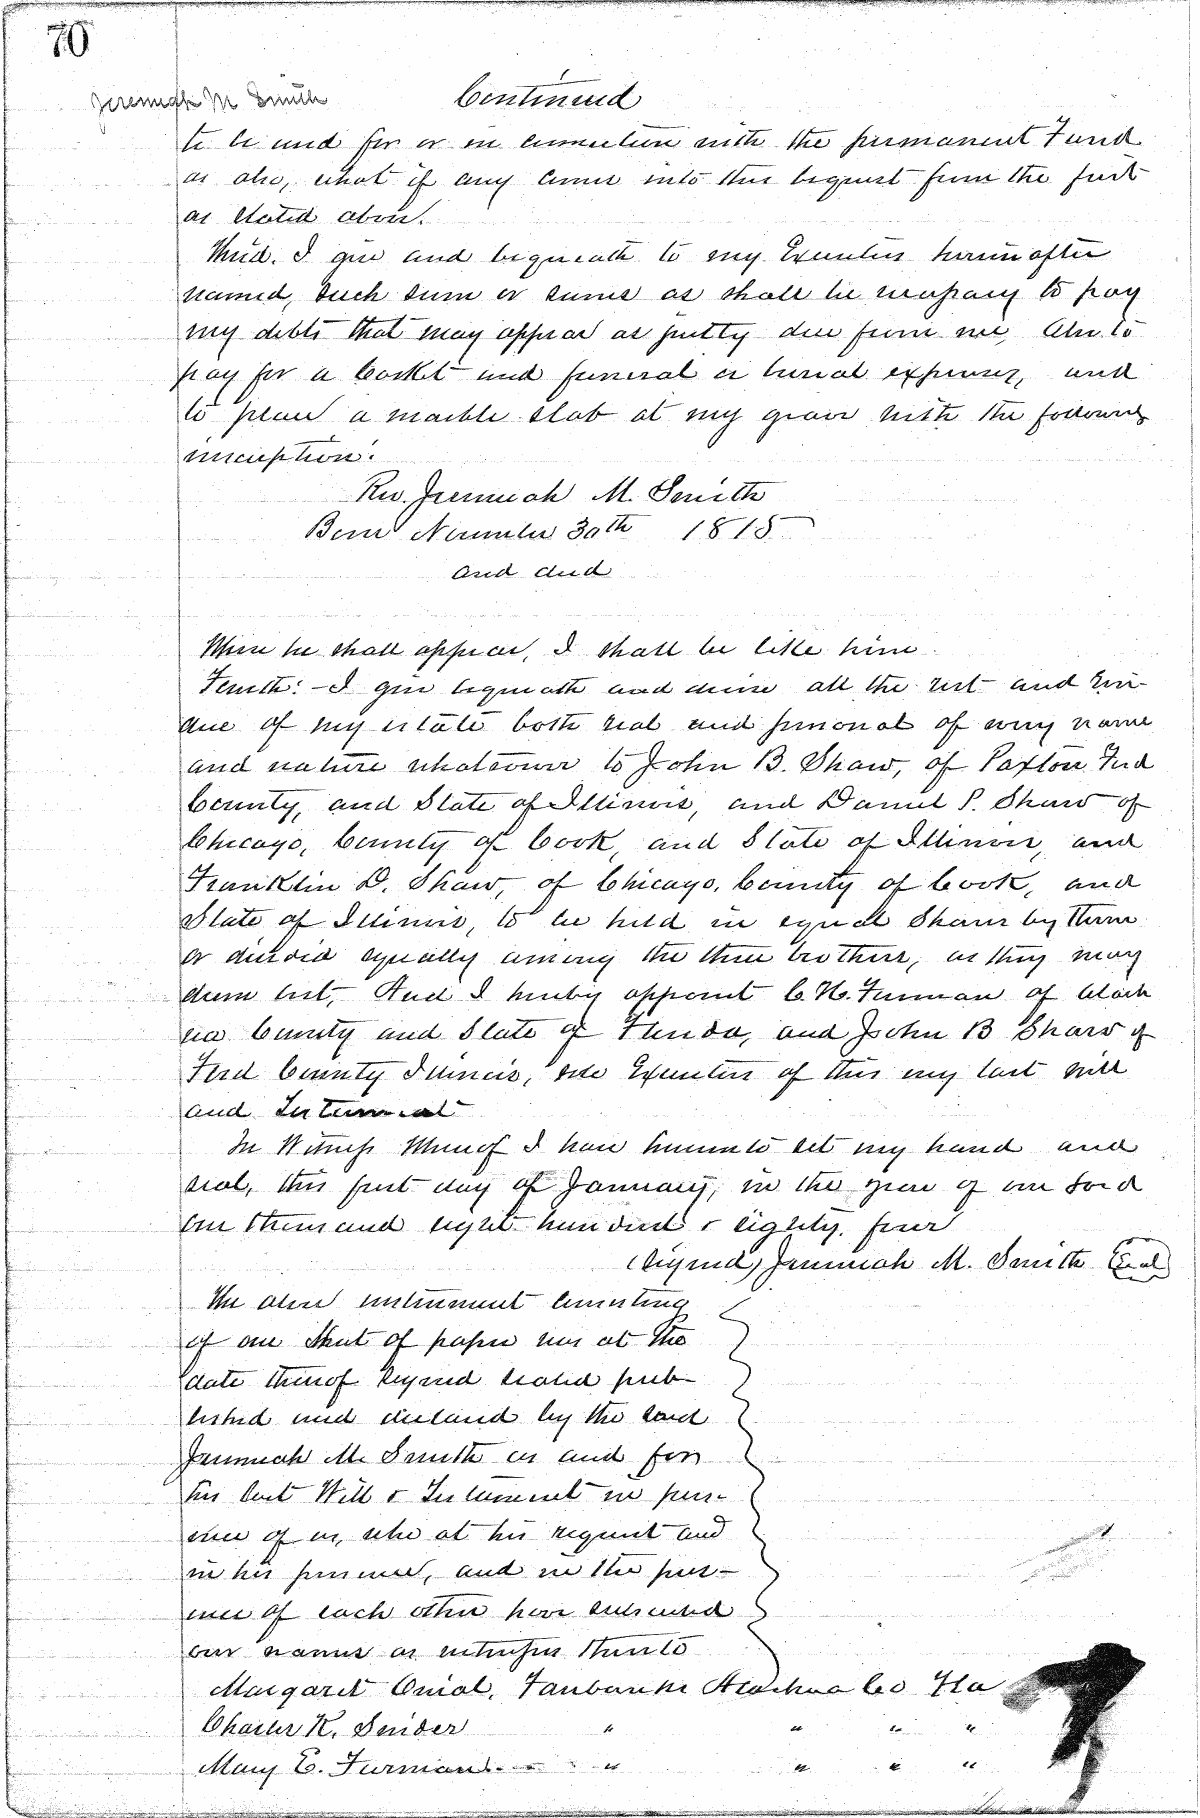 70
Jeremiah M Smith Continued
to be used for or in connection with the permanent Fund
as also, what if any comes into this bequest from the first
as stated above.
Third. I give and bequeath to my Executors hereinafter
named, such sum or sums as shall be necessary to pay
my debts that may appear as justly due from me, Also to
pay for a Casket and funeral or burial expenses, and
to place a marble slab at my grave with the following
inscription:
Rev. Jeremiah M. Smith
Born November 30th 1815
and died
When he shall appear, I shall be like him.
Fourth: - I give bequeath and devise all the rest and resi-
due of my estate both real and personal of every name
and nature whatsoever to John B. Shaw, of Paxton Ford
County, and State of Illinois, and Daniel P. Shaw of
Chicago, County of Cook, and State of Illinois, and
Franklin D. Shaw, of Chicago, County of Cook, and
State of Illinois, to be held in equal Shares by them
or divided equally among the three brothers, as they may
deem best, And I hereby appoint C. K. Furman of Alach
ua County and State of Florida, and John B Shaw of
Ford County Illinois, sole Executors of this my last will
and Testament
In Witness Whereof I have hereunto set my hand and
seal, this first day of January, in the year of our Lord
One thousand eight hundred & eighty. four
(Signed) Jeremiah M. Smith Seal
The above instrument consisting
of one Sheet of paper was at the
date thereof signed sealed pub-
lished and declared by the said
Jeremiah M. Smith as and for
his last Will & Testament in pres-
ence of us, who at his request and
in his presence, and in the pres-
ence of each other have subscribed
our names as witnesses thereto
Margaret Onial, Fairbanks Alachua Co Fla
Charles K. Snider " " " "
Mary E. Furman " " " "